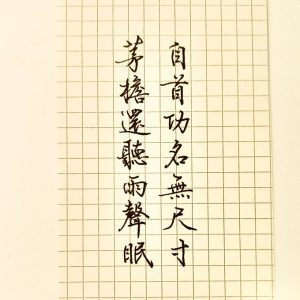 白首功名無尺寸
茅檐還聽雨聲眠